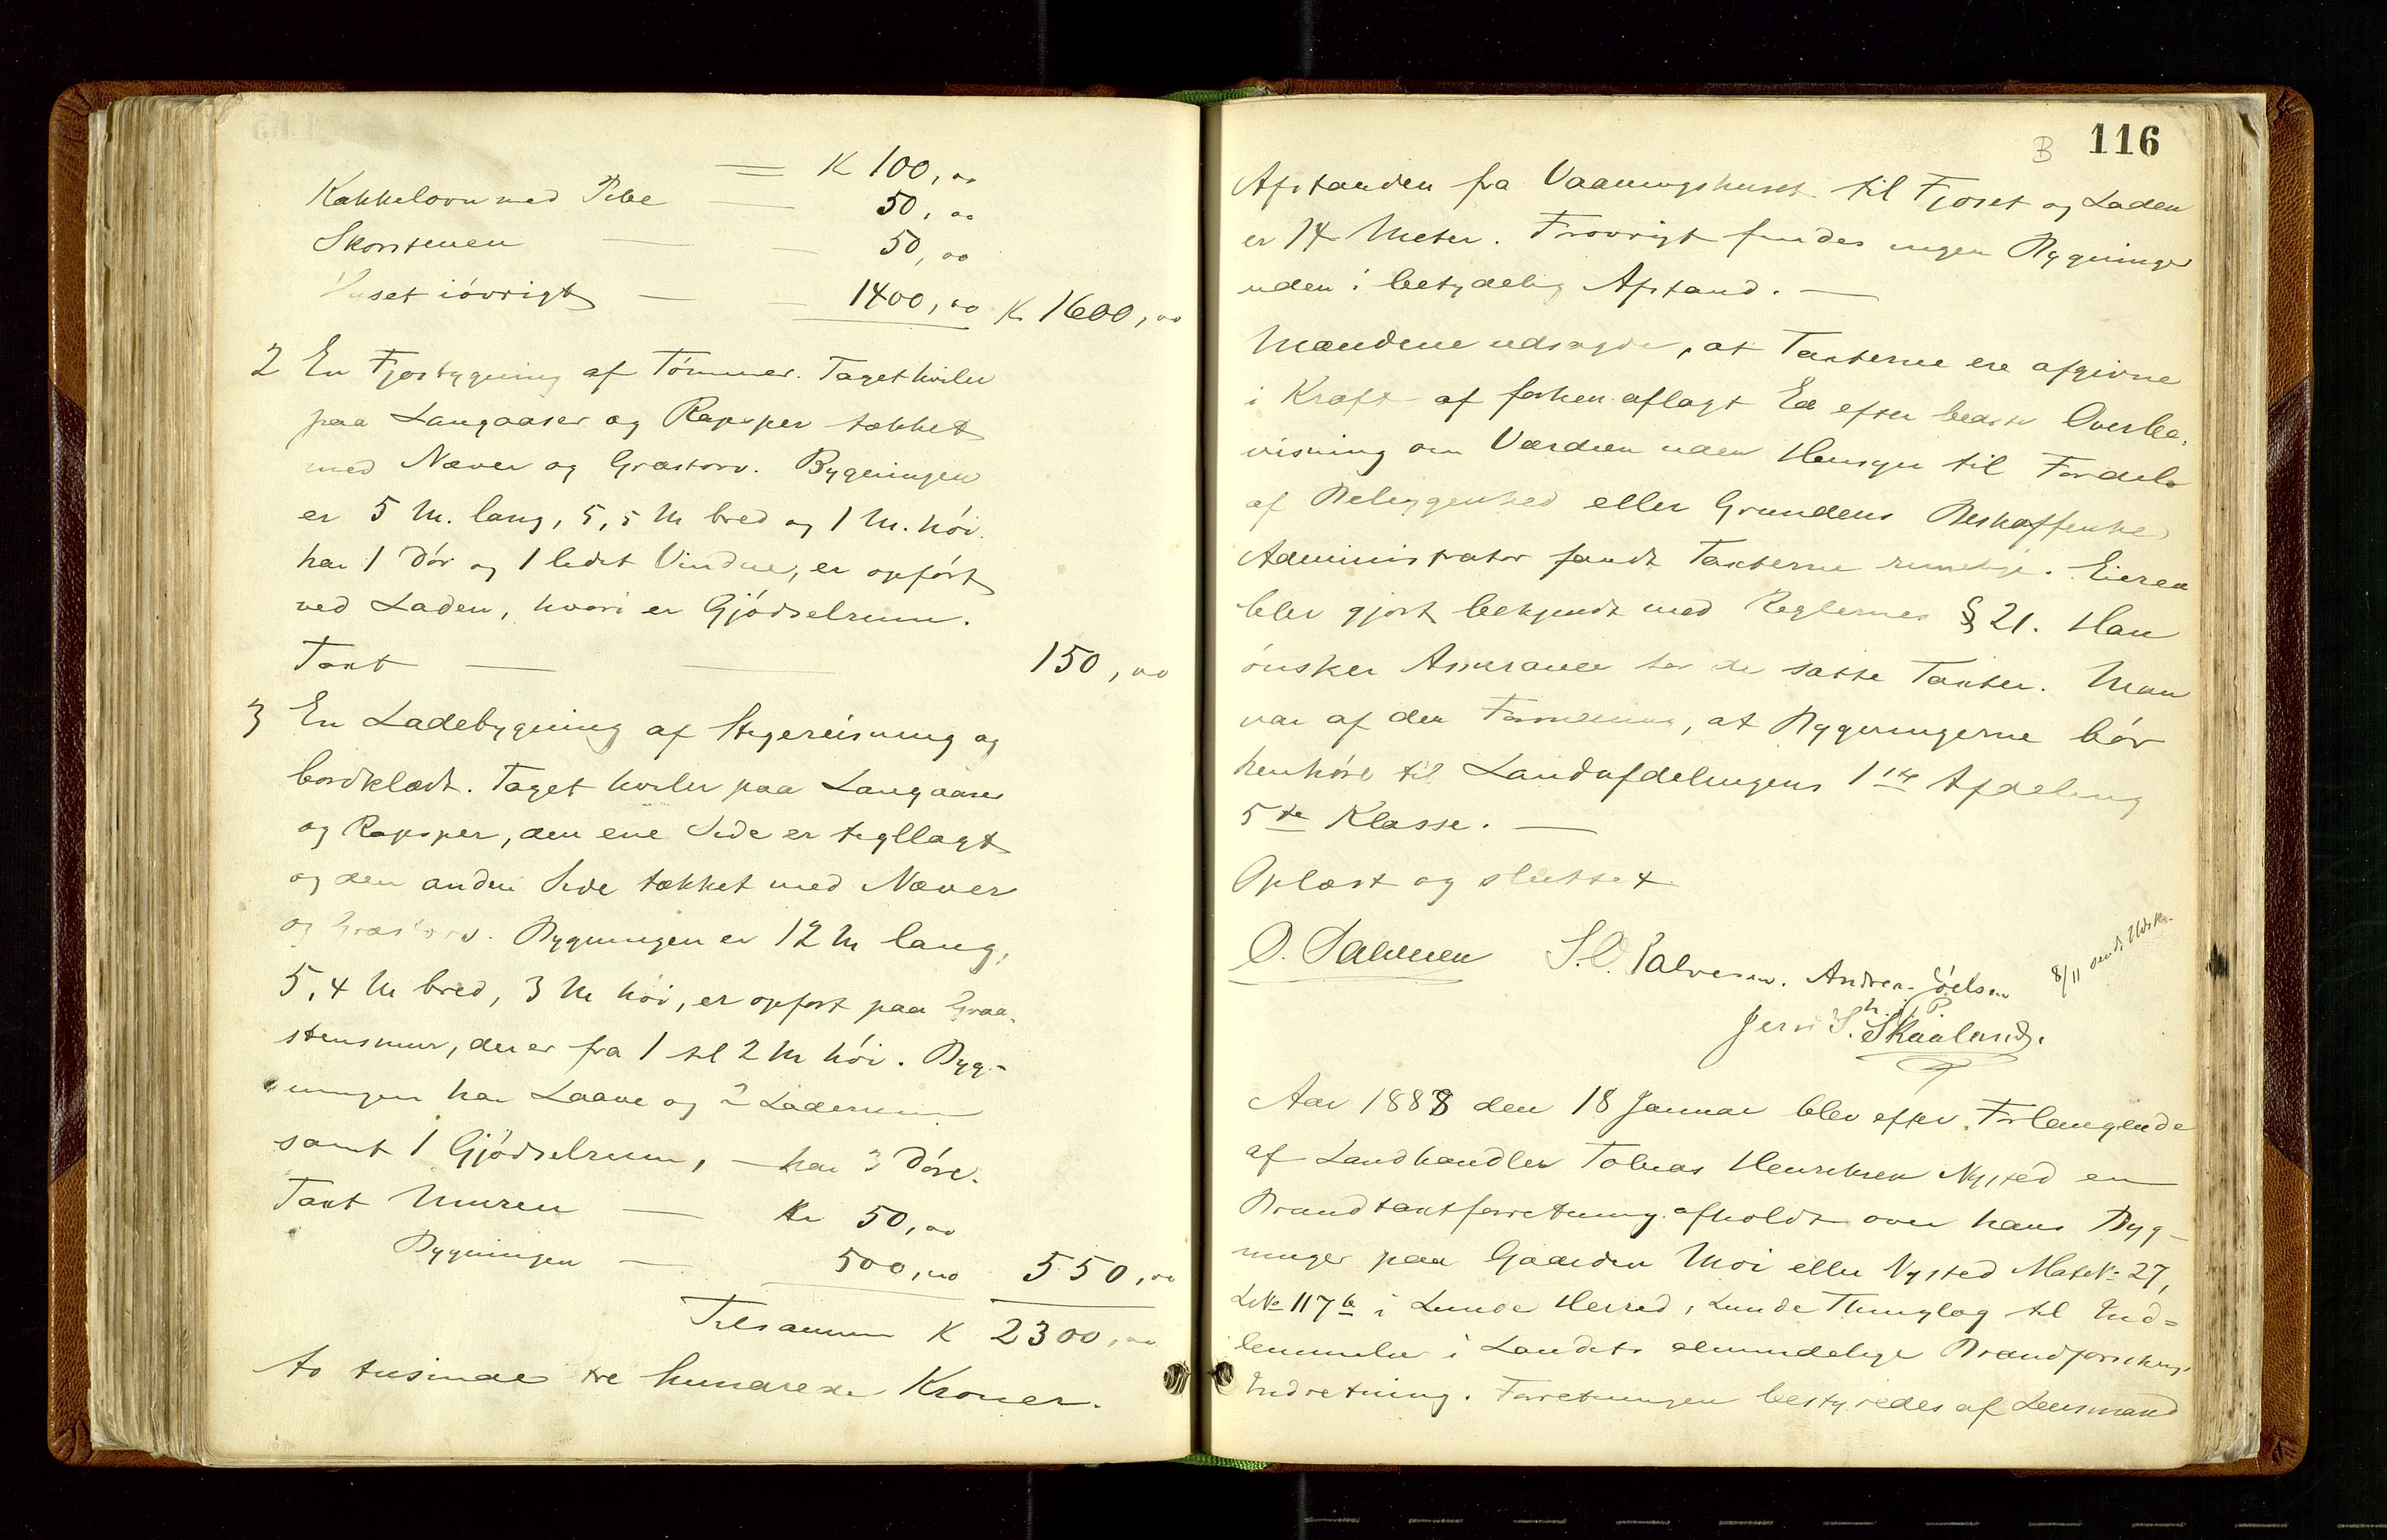 = K 100,00
Kakkelovn med Pibe — 50,00
Skorstenen — — 50,00
Huset iøvrigt — — 1400,00 K 1600,00
2 En Fjøsbygning af Tømmer. Taget hviler
paa Langaaser og Rapper tækket
med Næver og Græstorv. Bygningen
er 5 M. lang, 5,5 M bred og 1 M. høi.
har 1 Dør og 1 lidet Vindue, er opført
ved Laden, hvori er Gjødselrum.
Taxt — — 150,00
3 En Ladebygning af Stygereisning og
bordklædt. Taget hviler paa Langaaser
og Rapper, den ene Side er tegllagt
og den anden Side tækket med Næver
og Græstorv. Bygningen er 12 M lang,
5,4 M bred, 3 M høi, er opført paa Graa-
stensmur, der er fra 1 til 2 M høi. Byg-
ningen har Laave og 2 Laderum
samt 1 Gjødselrum, — har 3 Døre.
Taxt Muren — Kr 50,00
Bygningen — 500,00 550,00
Tilsammen K 2300,00
to tusinde tre hundrede Kroner.
B 116
Afstanden fra Vaaningshuset til Fjøset og Laden
er 14 Meter. Forøvrigt findes ingen Bygninger
uden i betydelig Afstand. —
Mændene udsagde, at Taxterne ere afgivne
i Kraft af forhen aflagt Ed efter bedste Overbe-
visning om Værdien uden Hensyn til Fordele
af Beliggenhed eller Grundens Beskaffenhed
Administrator fandt Taxterne rimelige. Eieren
blev gjort bekjendt med Reglernes § 21. Han
ønsker Assurance for de satte Taxter. Man
var af den Formening, at Bygningerne bør
henhøre til Landafdelingens 1ste Afdeling
5te Klasse. —
Oplæst og sluttet
O. Salvesen S. O. Salvesen. Andreas Joelsen
8/11 sendt Udskr.
m. f. P.
Jens S. Skaaland.
Aar 1888 den 18 Januar blev efter Forlangende
af Landhandler Tobias Henriksen Nysted en
Brandtaxtforretning afholdt over hans Byg-
ninger paa Gaarden Moi eller Nysted MatN: 27,
LNo 117b i Lunde Herred, Lunde Thinglag til Ind=
lemmelse i Landets almindelige Brandforsikrings
Indretning. Forretningen bestyredes af Lensmand